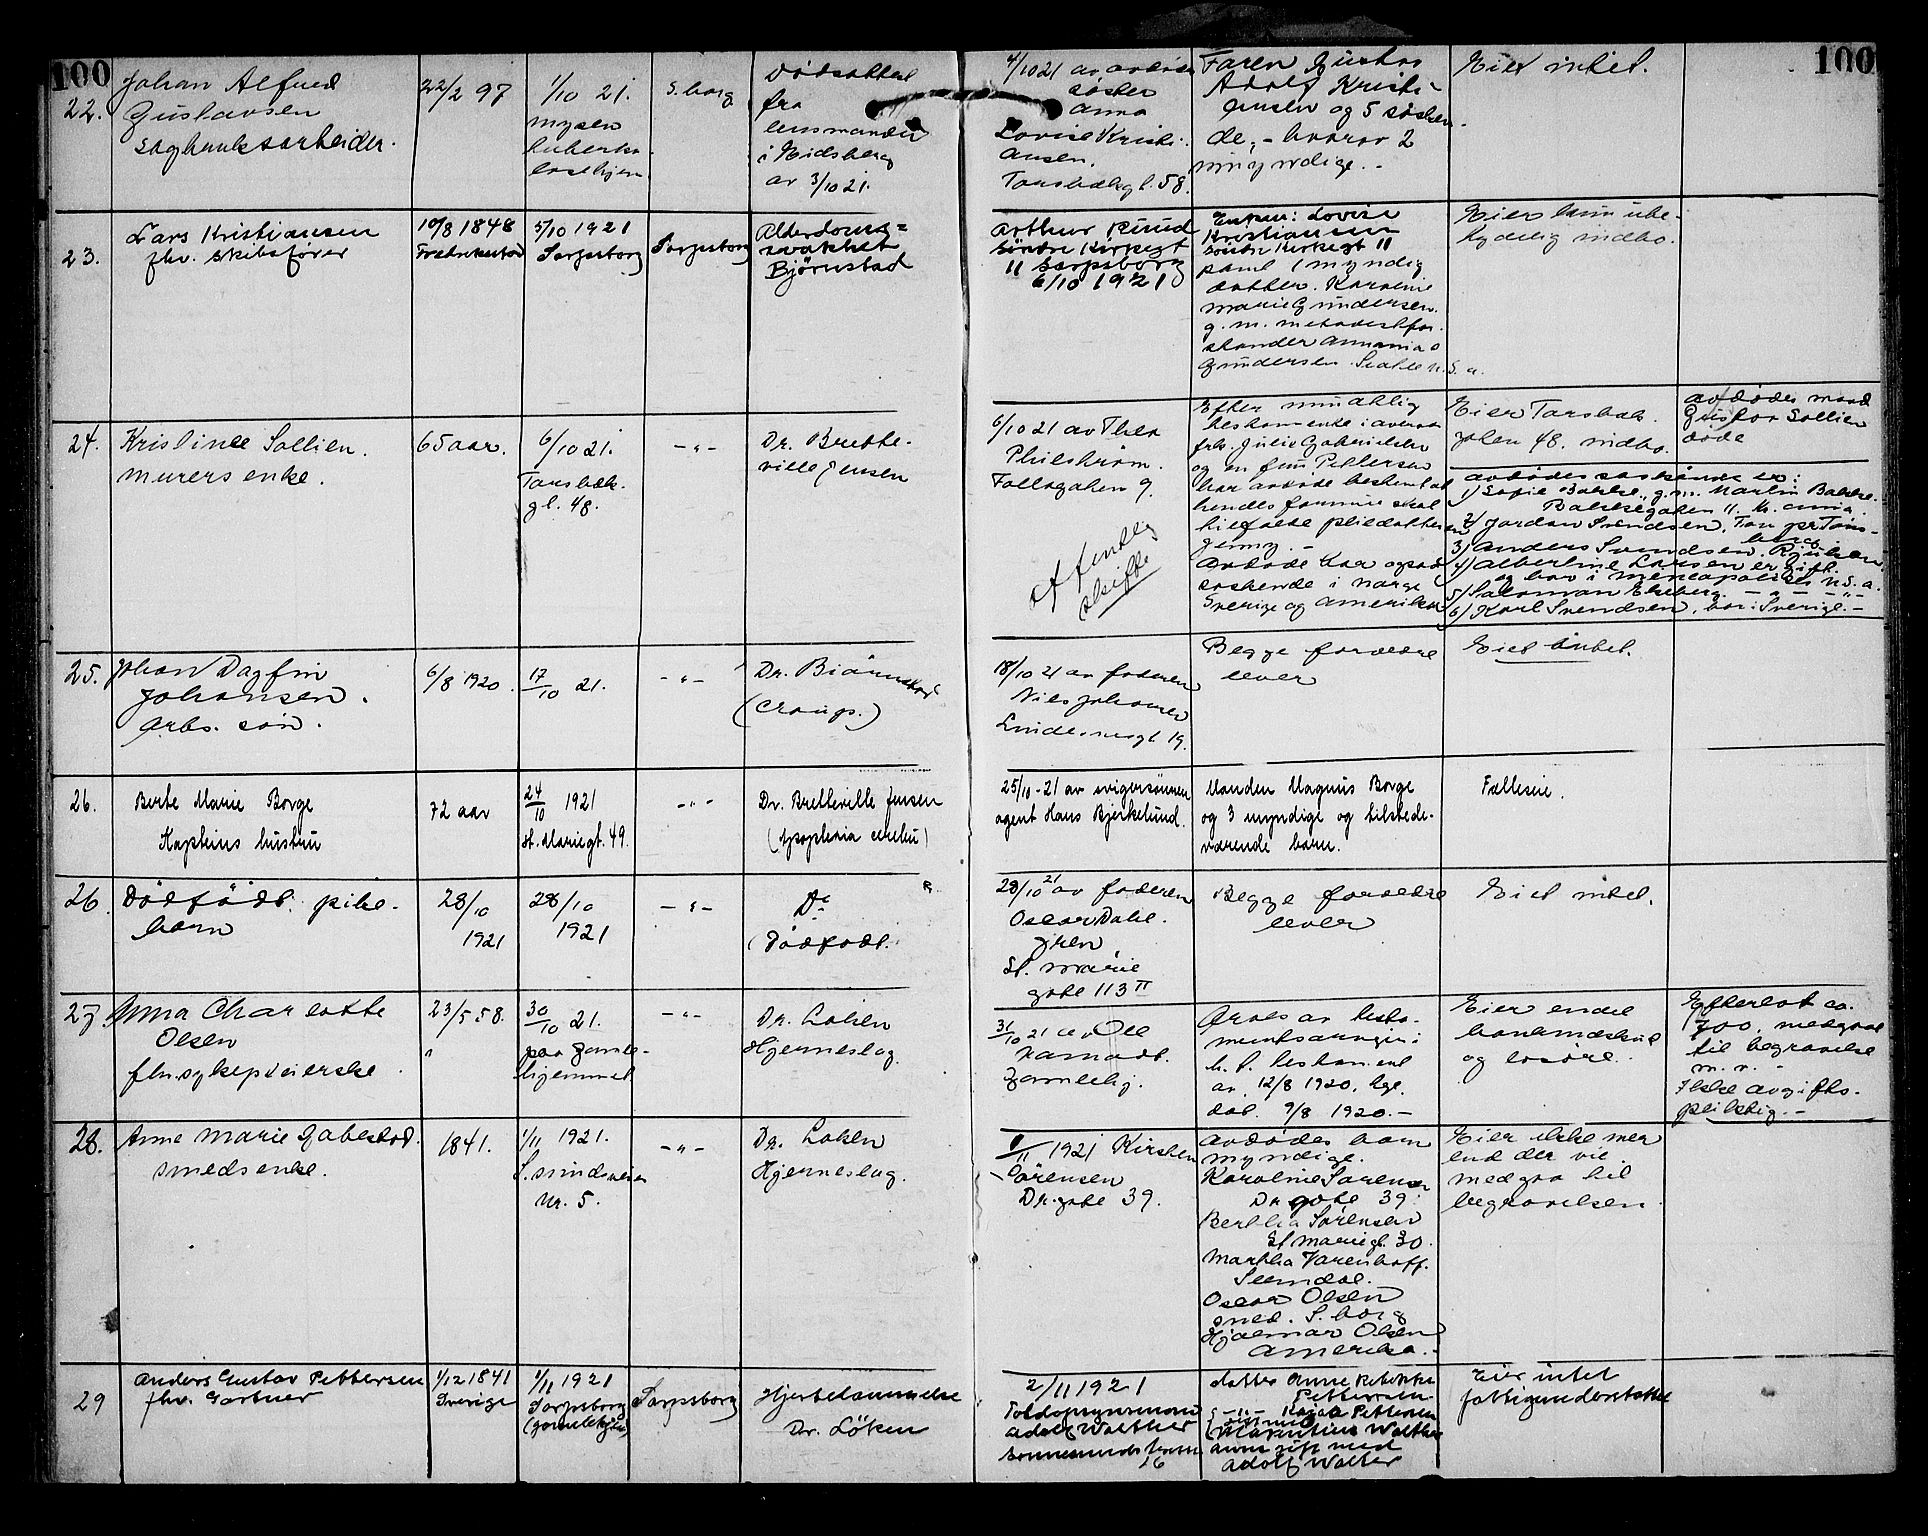 100
100
22.
Johan Alfred
Gustavsen
sagbruksarbeider.
22/2 97
1/10 21.
mysen
tuberku
losehjem
S.borg
Dödsattest
fra
lensmanden
i Eidsberg
av 3/10 21.
4/10 21 av avdödes
söster
Anna
Lovise Kristi-
ansen.
Torsbækgt. 58.
Faren Gustav
Adolf Kristi-
ansen og 5 søsken-
de, - hvorav 2
umyndige. -
Eiet intet.
23.
Lars Kristiansen
fhv. skibsfører
10/8 1848
Fredrikstad
5/10 1921
Sarpsborg
Sarpsborg
Alderdoms-
svakhet
Björnstad
Arthur Ruud
Söndre Kirkegt
11 Sarpsborg
6/10 1921
Enken: Lovise
Kristiansen
Søndr Kirkegt 11
samt 1 myndig
datter. Karoline
Marie Gundersen.
g. m. metodistfor-
stander Annanias
Gundersen. Seatle U.S.A.
Eier kun ube-
tydelig indbo.
24.
Kristine Sollien.
murers enke.
65 aar.
6/10 21.
Torsbæk.
gt. 48.
- " -
Dr. Brette-
ville Jensen
6/10 21 av Thea
Philstrøm.
Follogaten 9.
offentlig
skifte
Efter mundtlig
testamente i overvær
frk. Julie Gabrielsen
og en fru Pettersen
har avdøde bestemt at
hendes formue skal
tilfalde pleiedatteren
Jenny. -
Avdøde har ogsaa
søskende i Norge
Sverige og Amerika
Eier Torsbæk-
gaten 48. indbo.
avdødes mand
Gustav Sollien
døde
avdødes søskende er:
1) Sofie Bakke, g.m. Martin Bakke.
Bakkegaten 11. Kr.ania.
2) Jordan Svendsen, Tøn pr Tøns-
berg
3) Anders Svendsen. Rjukan
4) Albertine Larsen er gift.
og bor i Mineapolis U.S.A.
5) Salomon Ekeberg. - " - " -
6) Karl Svendsen, bor i Sverige. -
25.
Johan Dagfin
Johansen.
Arbs. søn.
6/8 1920.
17/10 21.
- " -
Dr. Björnstad
(Croup.)
18/10 21 av faderen
Nils Johansen
Lindesnesgt 19.
Begge forældre
lever
Eiet intet.
26.
Berte Marie Borge
Kapteins hustru
72 aar
24/10 1921
St. Mariegt. 49.
- " -
Dr. Bretteville Jensen
(Apoplexia cerebri)
25/10 - 21 av svigersønnen
agent Hans Bjerkelund.
Manden Magnus Borge
og 3 myndige og tilstede-
værende barn.
Fælleseie.
26.
Dødfødt pike-
barn
28/10
1921
28/10
1921
- " -
Do
(Dødfødt.
28/10 21 av faderen
Oscar Dahl
gren,
St. Marie
gate 113 II
Begge forældre
lever
Eiet intet.
27.
Anna Charlotte
Olsen
fhv. sykepleierske.
23/5 58.
30/10 21.
paa Gamle-
hjemmet
- " -
Dr. Løken
Hjerneslag.
31/10 21 av Ole
Kamodt.
Gamlehj.
Arves av testa-
mentsarvinger i
h. t. testament
av 12/8 1920. tgl.
dat. 9/8 1920. -
Eier endel
bankindskud
og løsøre.
Efterlot ca.
700. medgaar
til begravelse
m. v. -
Ikke avgifts-
pliktig. -
28.
Anne Marie Gabestad.
smeds enke.
1841.
1/11 1921.
Nr. 5.
- " -
Dr. Løken
Hjerneslag.
1/11 1921 Kirsten
Sörensen
Dr. gate 39.
Avdødes barn
myndige.
Karoline Sørensen
Dr. gate 39.
Bertha Sørensen
St Mariegt. 30.
Martha
Oscar Olsen
smed. S.borg
Hjalmar Olsen
Amerika. -
Eier ikke mer
end der vil
medgaa til
begravelsen.
29
Anders Gustav Pettersen
fhv. Gartner
1/12 1841
Sverige
1/11 1921
Sarpsborg
(Gamlehjem)
Sarpsborg
Hjertelammelse
Dr. Löken
2/11 1921
Toldopsynsmand
Adolf Walther
16
datter Anne
Pettersen
- " - Kaja Pettersen
Walther
gift med
Adolf Walter
Eier intet
fattigunderstøttet